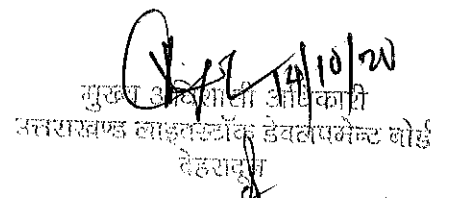 14/10/20
मुख्य अधिशासी अधिकारी
उत्तराखण्ड लाइवस्टॉक डेवलपमेन्ट बोर्ड
देहरादून